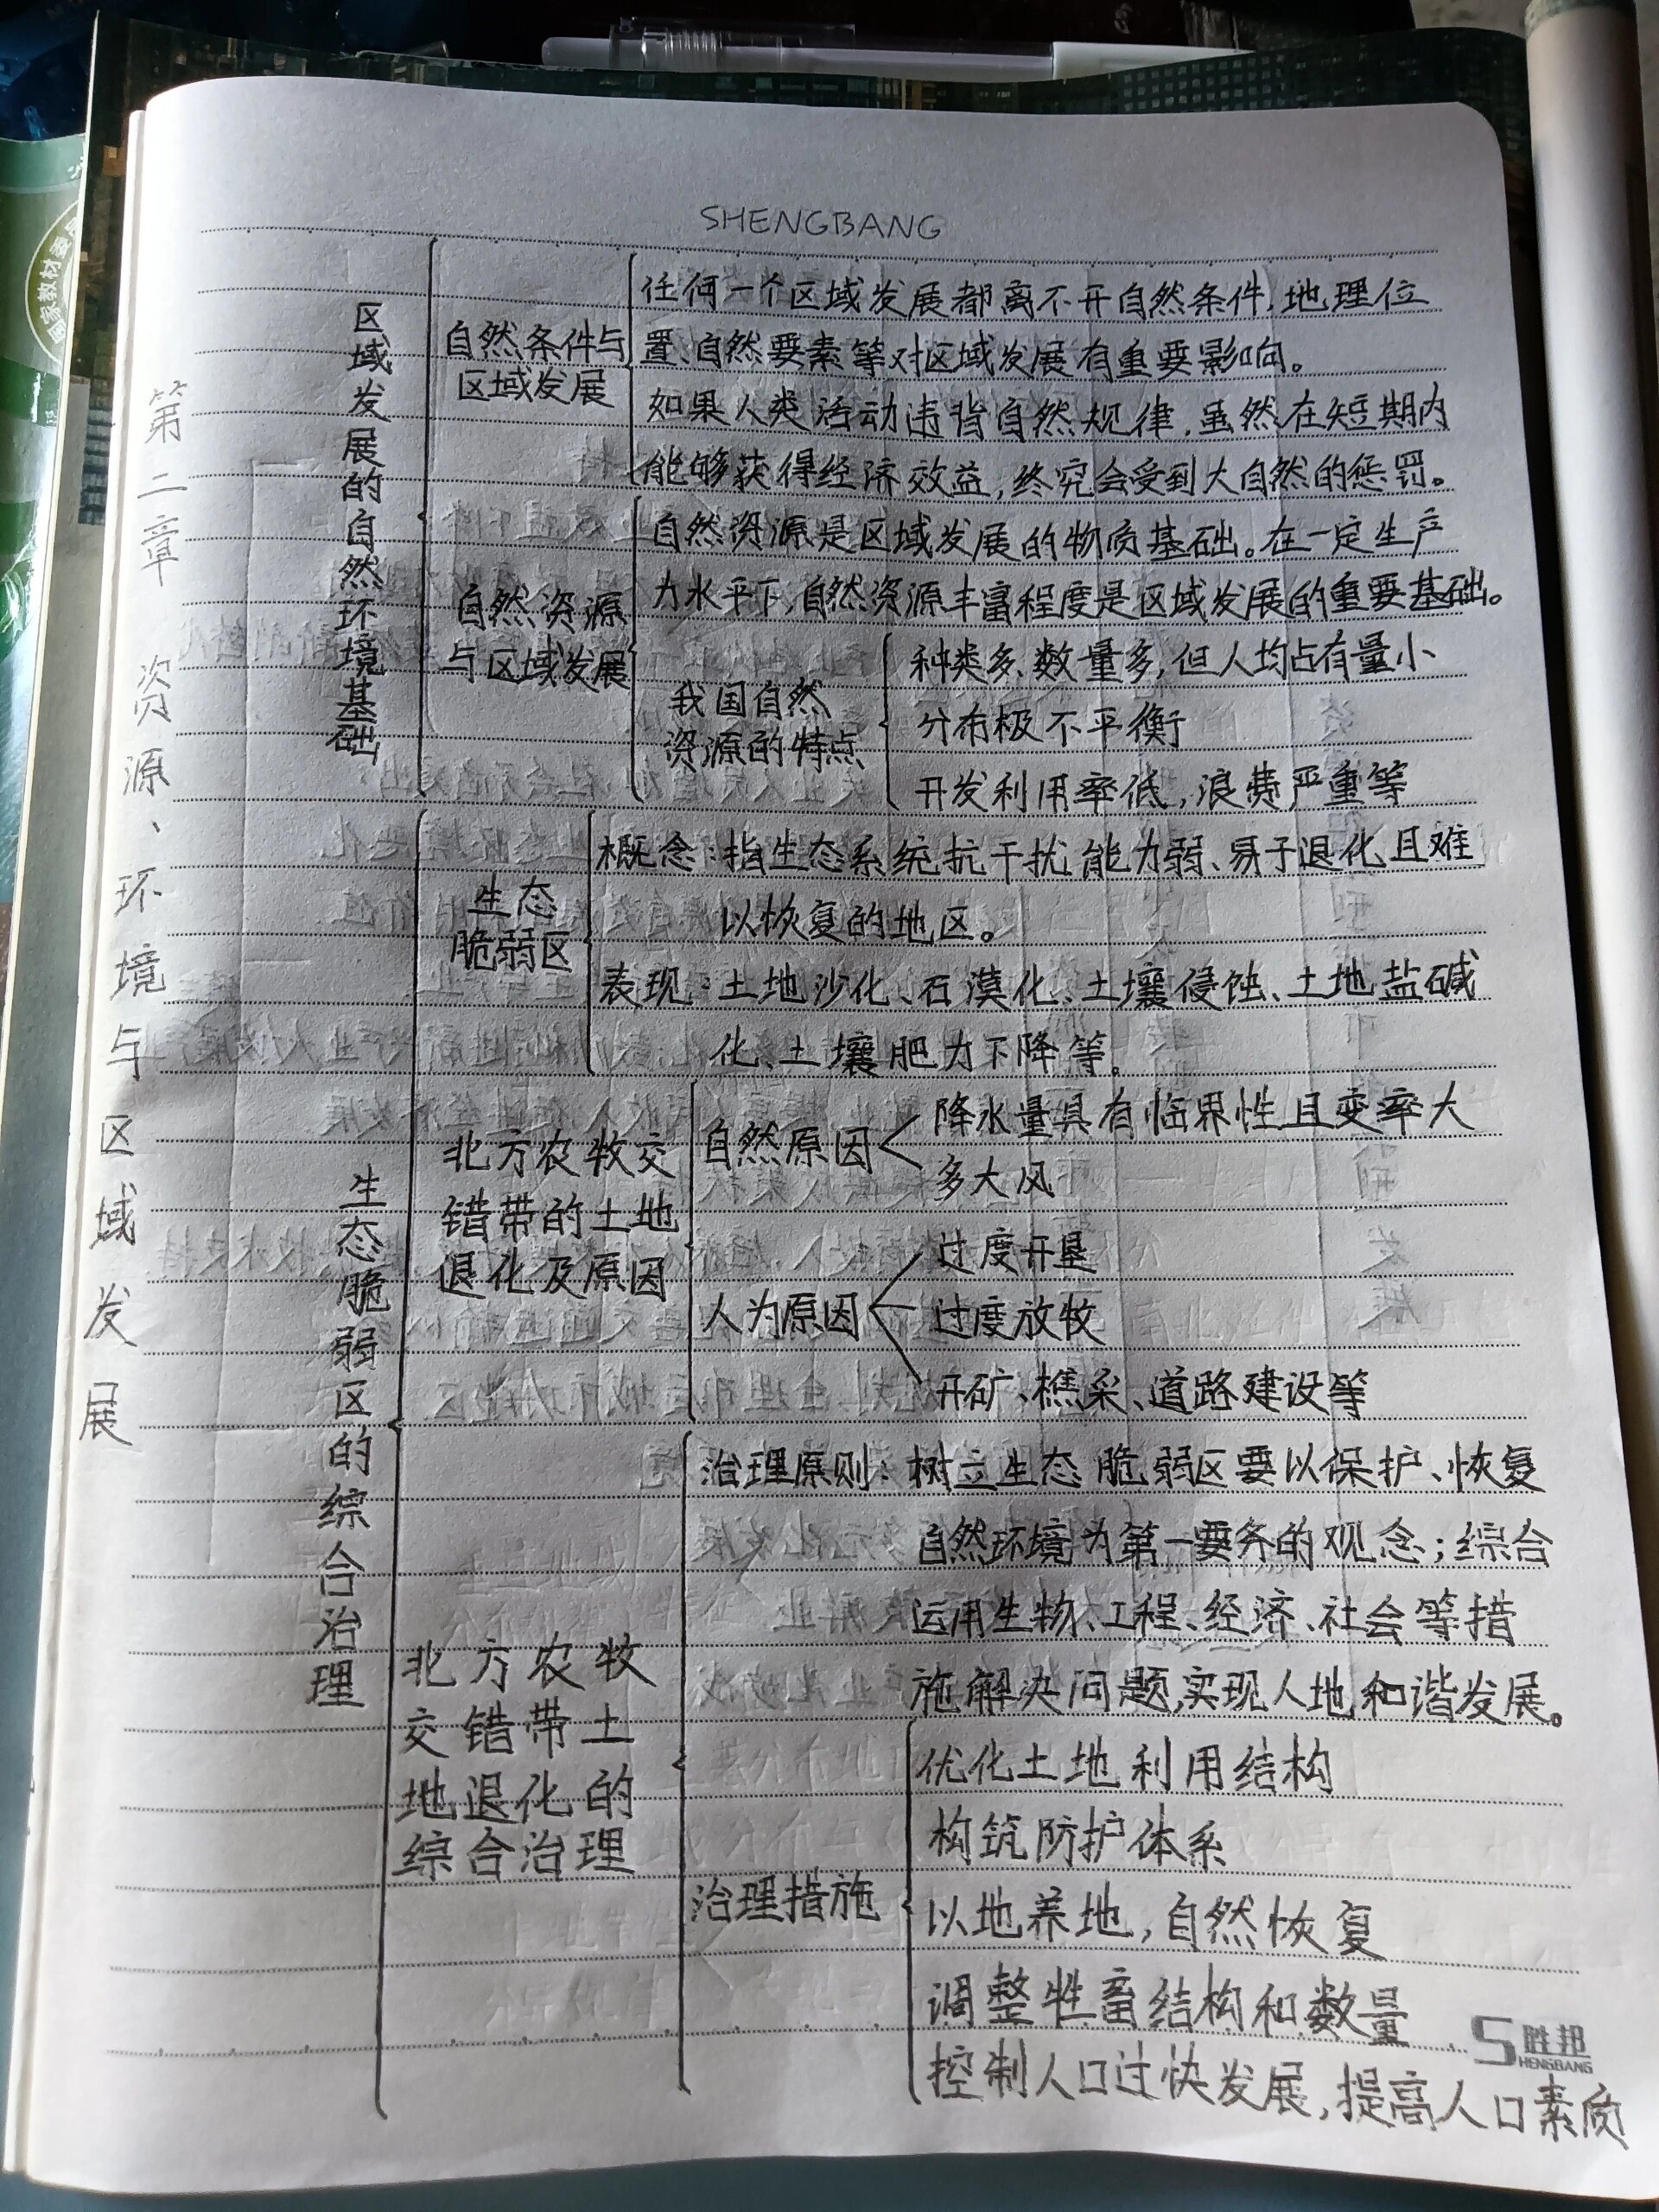 SHENGBANG
第二章 资源、环境与区域发展
区域发展的自然环境基础
自然条件与
区域发展
任何一个区域发展都离不开自然条件,地理位
置、自然要素等对区域发展有重要影响。
如果人类活动违背自然规律,虽然在短期内
能够获得经济效益,终究会受到大自然的惩罚。
自然资源
与区域发展
自然资源是区域发展的物质基础。在一定生产
力水平下,自然资源丰富程度是区域发展的重要基础。
我国自然
资源的特点
种类多、数量多,但人均占有量小
分布极不平衡
开发利用率低,浪费严重等
生态脆弱区的综合治理
生态
脆弱区
概念:指生态系统抗干扰能力弱、易于退化且难
以恢复的地区。
表现:土地沙化、石漠化、土壤侵蚀、土地盐碱
化、土壤肥力下降等。
北方农牧交
错带的土地
退化及原因
自然原因
降水量具有临界性且变率大
多大风
人为原因
过度开垦
过度放牧
开矿、樵采、道路建设等
北方农牧
交错带土
地退化的
综合治理
治理原则:树立生态脆弱区要以保护、恢复
自然环境为第一要务的观念;综合
运用生物、工程、经济、社会等措
施解决问题,实现人地和谐发展。
治理措施
优化土地利用结构
构筑防护体系
以地养地,自然恢复
调整牲畜结构和数量
控制人口过快发展,提高人口素质
胜邦
SHENGBANG
国家教材委